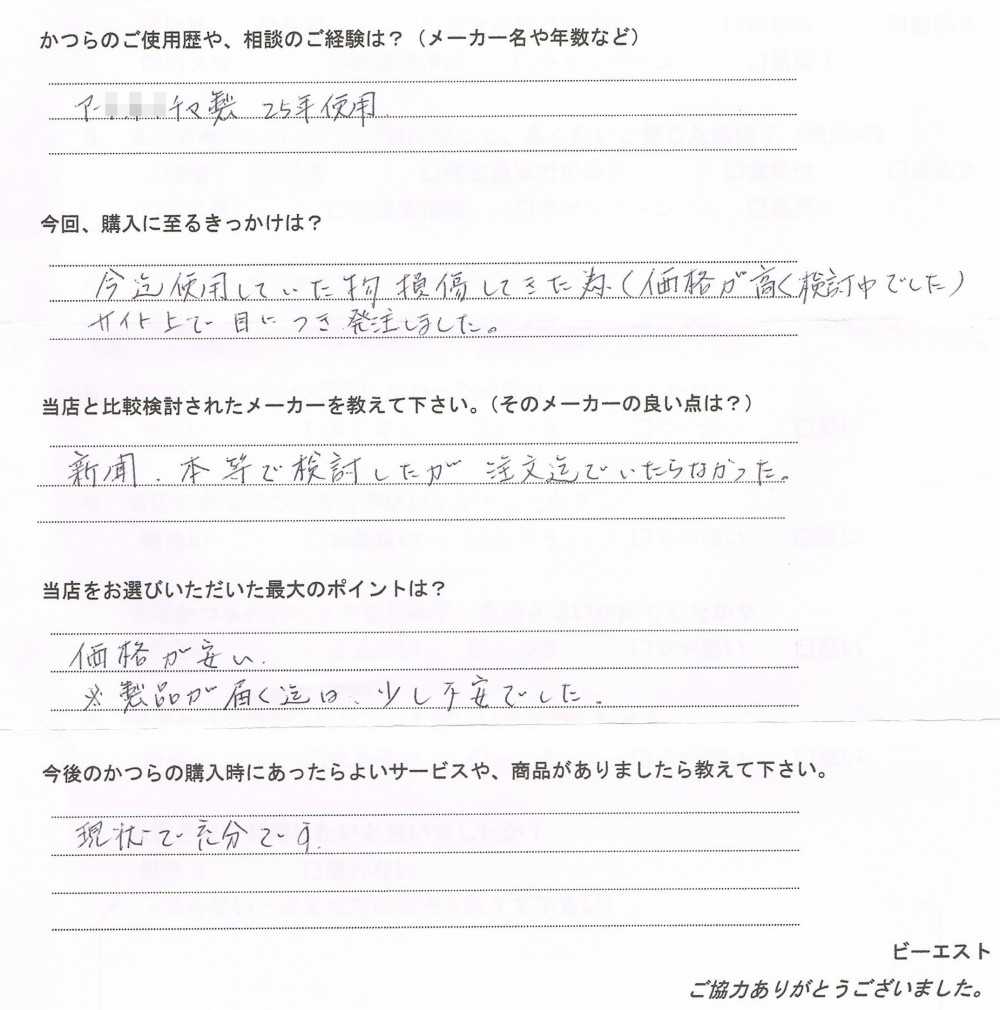 かつらのご使用歴や、相談のご経験は？（メーカー名や年数など）
アー チマ製 25年使用.
今回、購入に至るきっかけは？
今迄使用していた物損傷してきた為（価格が高く検討中でした）
サイト上で目につき発注しました。
当店と比較検討されたメーカーを教えて下さい。（そのメーカーの良い点は？）
新聞.本等で検討したが 注文迄でいたらなかった。
当店をお選びいただいた最大のポイントは？
価格が安い.
※製品が届く迄は、少し不安でした.
今後のかつらの購入時にあったらよいサービスや、商品がありましたら教えて下さい。
現状で充分です.
ビーエスト
ご協力ありがとうございました。